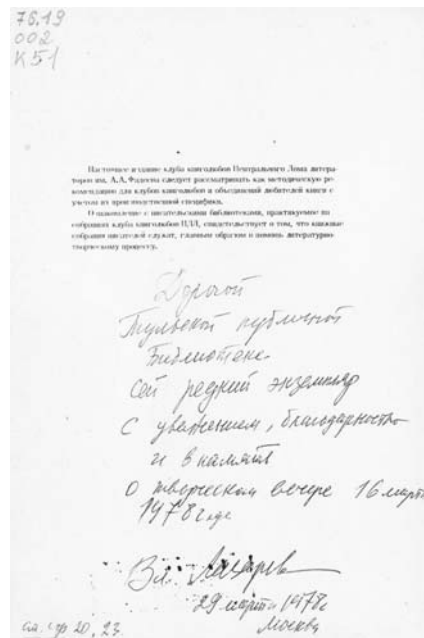 76.19
002
К51
Настоящее издание клуба книголюбов Центрального Дома литера-
торов им. А.А. Фадеева следует рассматривать как методическую ре-
комендацию для клубов книголюбов и объединений любителей книги с
учетом их производственной специфики.
Ознакомление с писательскими библиотеками, практикуемое на
собраниях клуба книголюбов ЦДЛ, свидетельствует о том, что книжные
собрания писателей служат, главным образом в помощь литературно-
творческому процессу.
Дорогой
Тульской публичной
Библиотеке
сей редкий экземпляр
с уважением, благодарностью
и в память
о творческом вечере 16 марта
1978 года
Вл. Лазарев
29 марта 1978г
Москва
см. стр 20, 23.